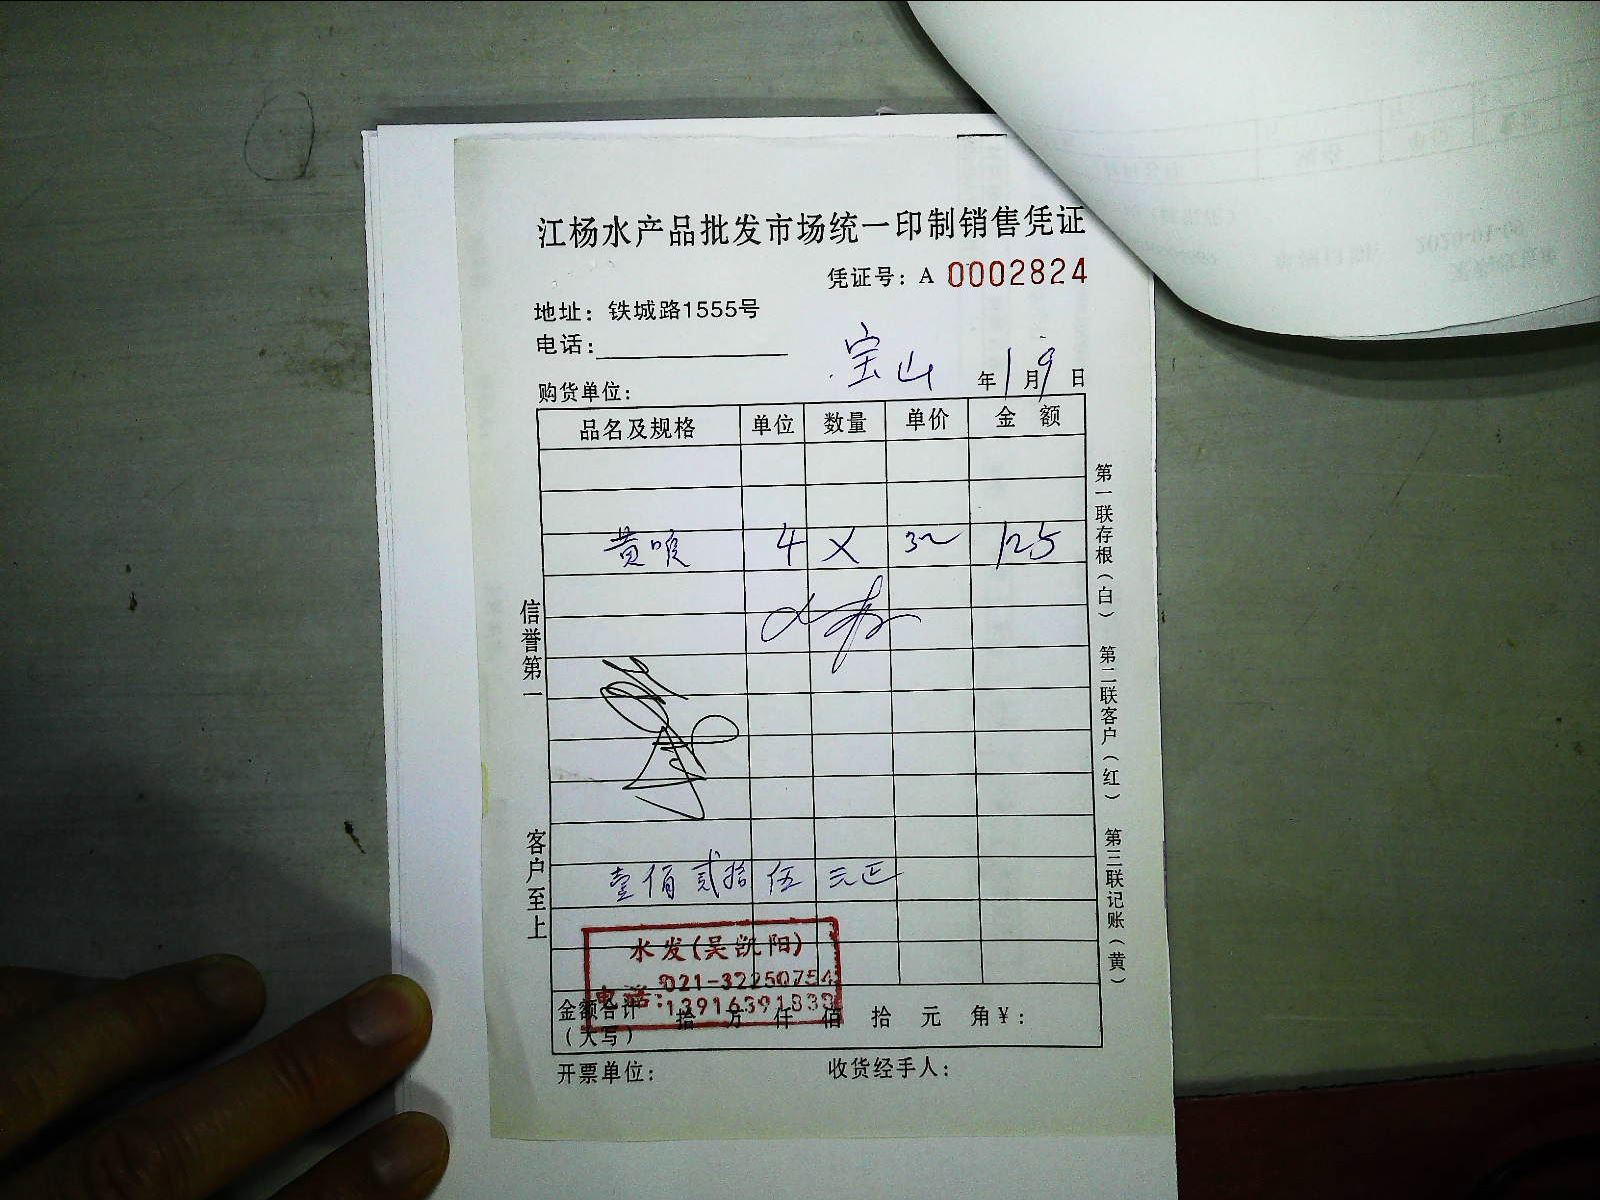 江杨水产品批发市场统一印制销售凭证
凭证号：A 0002824
地址：铁城路1555号
电话：
宝山 年1月9日
购货单位：
品名及规格 单位 数量 单价 金额
黄 4 X 32 125
壹佰贰拾伍元正
水发(吴凯阳)
电话：021-32250754
13916391838
金额合计（大写） 拾 万 仟 佰 拾 元 角 ¥：
开票单位： 收货经手人：
信誉第一
客户至上
第一联存根（白）
第二联客户（红）
第三联记账（黄）